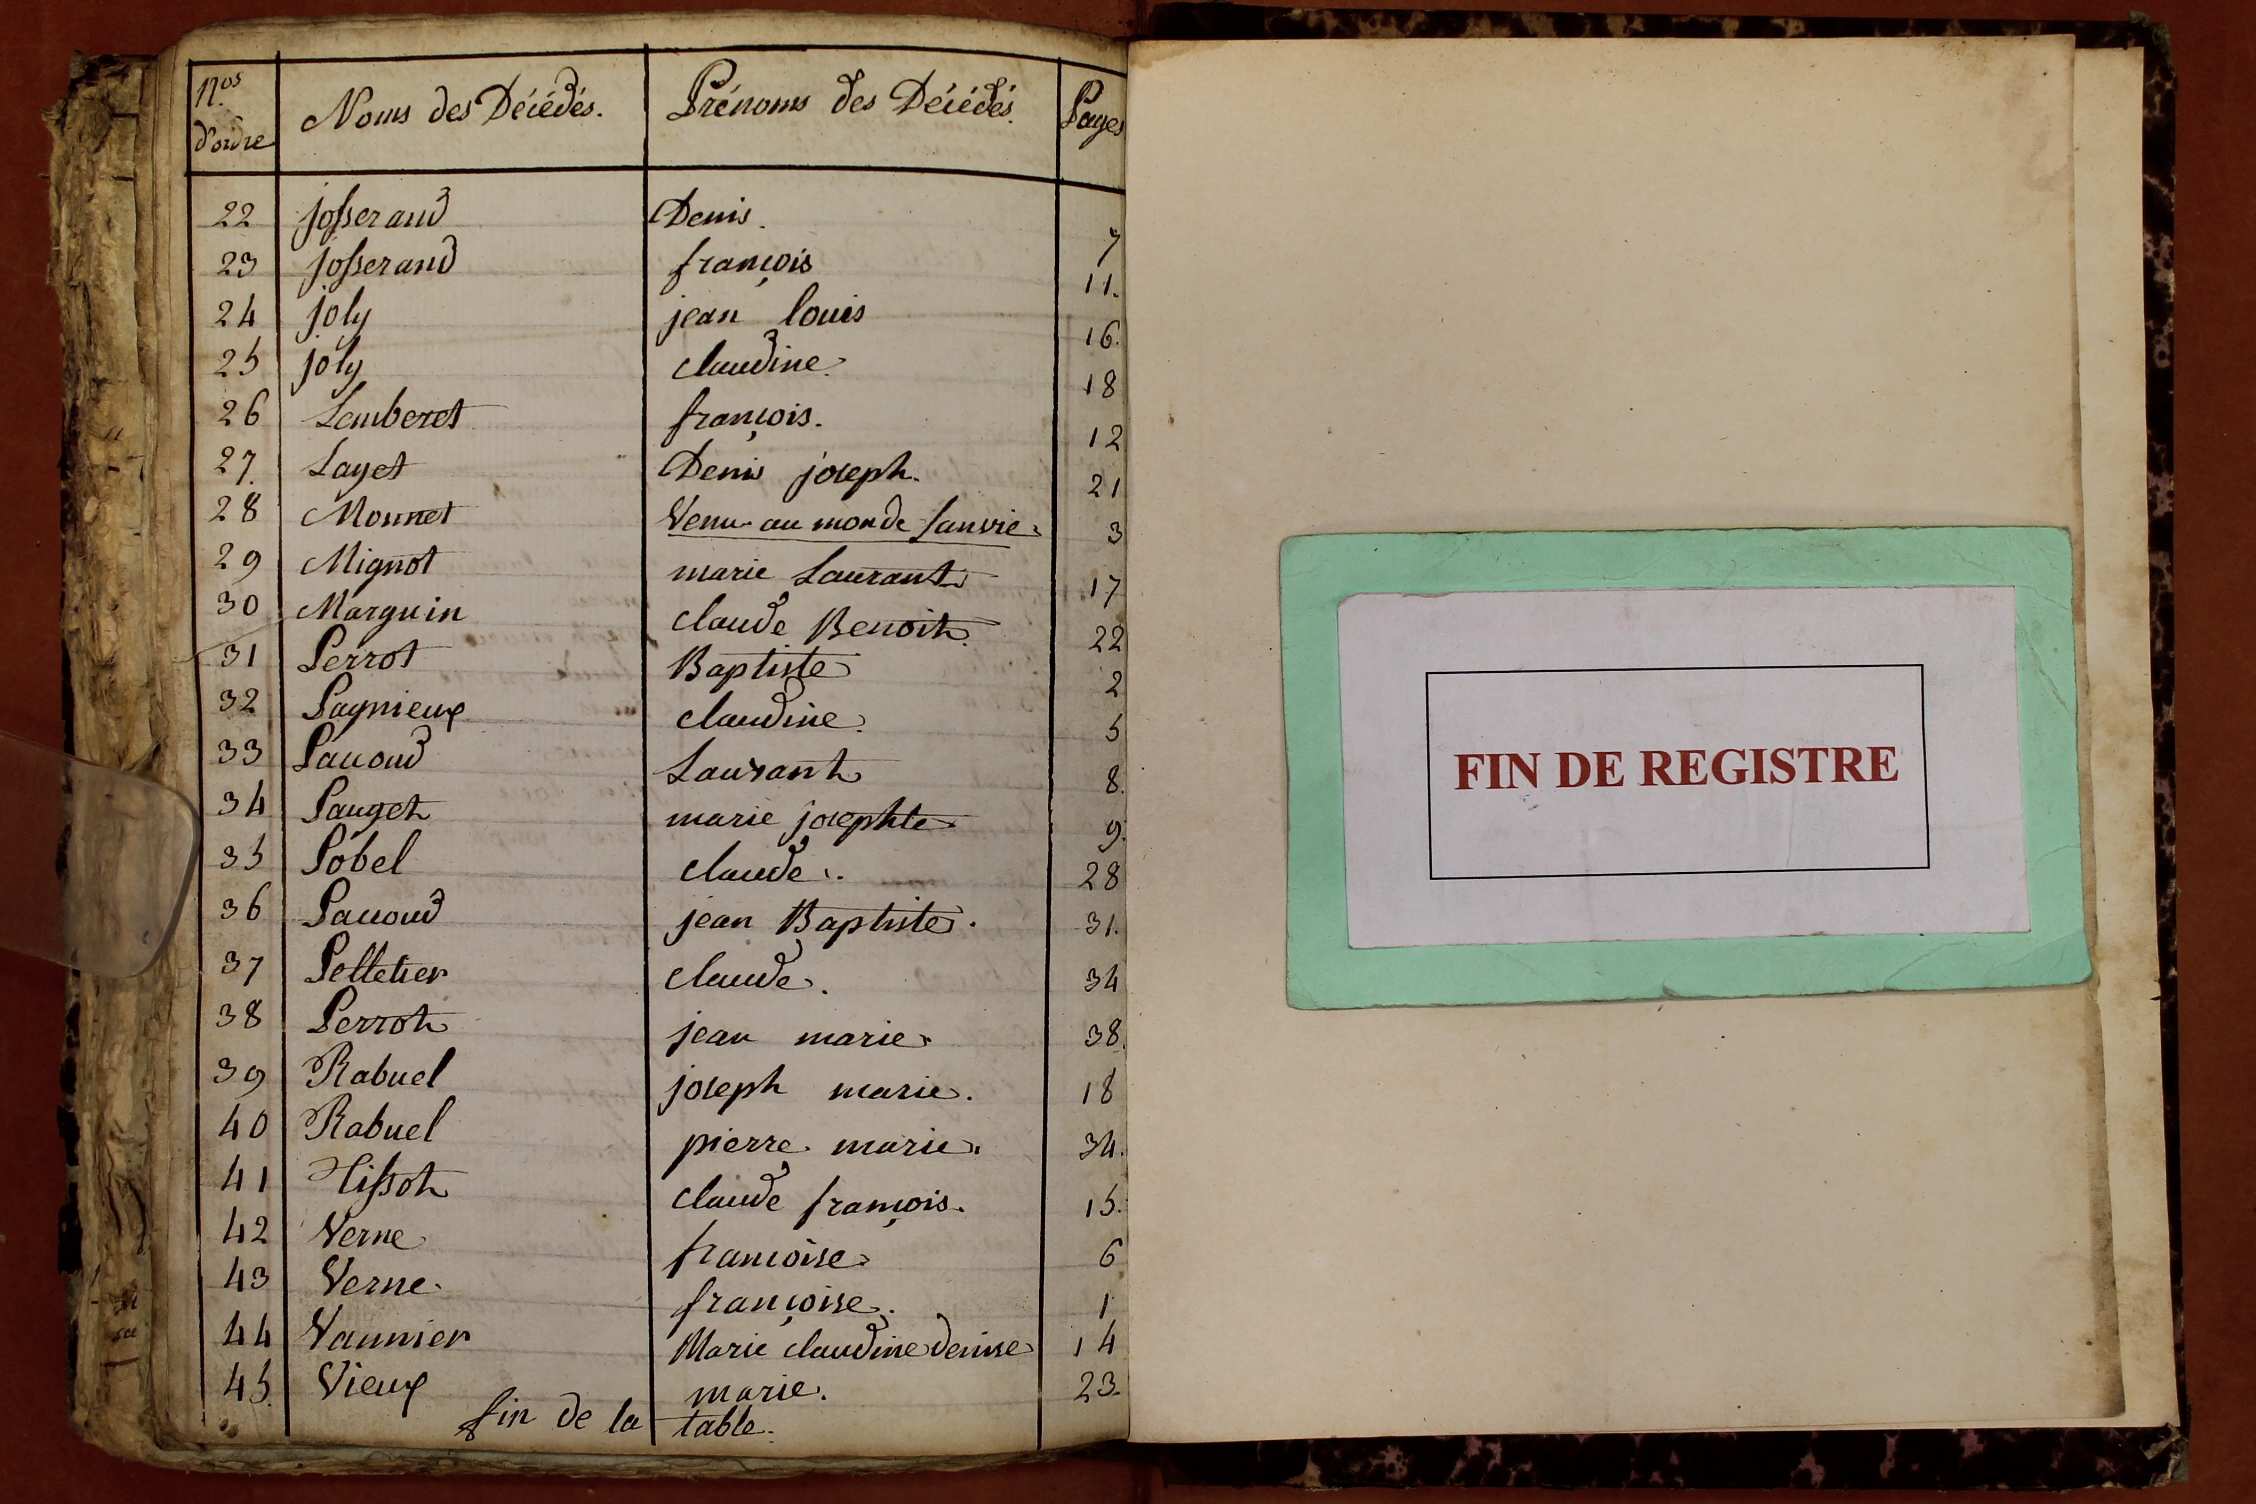 Nos d'ordre Noms des Décédés. Prénoms des Décédés. Pages
22 josserand Denis. 7
23 josserand françois 11.
24 joly jean louis 16.
25 joly claudine. 18
26 Lemberet françois. 12
27. Layet Denis joseph. 21
28 Monnet Venu au monde sanvie 3
29 Mignot marie Laurant 17
30 Marguin claude Benoit 22
31 Perrot Baptiste 2
32 Pagnieux claudine. 5
33 Pacoud Laurant 8.
34 Pauget marie josephte 9.
35 Pobel claude. 28
36 Pacoud jean Baptiste. 31.
37 Pelletier claude. 34
38 Perrot jean marie 38.
39 Rabuel joseph marie. 18
40 Rabuel pierre marie. 34.
41 Tissot claude françois. 15.
42 Verne francoise 6
43 Verne françoise. 1
44 Vaunier Marie claudine denise 14
45. Vieux marie. 23.
fin de la table.
FIN DE REGISTRE